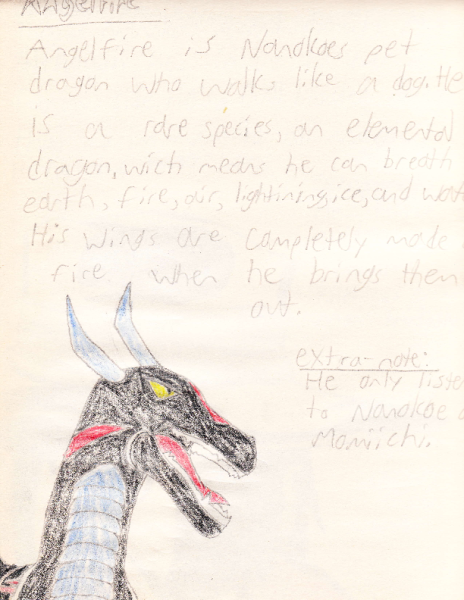 Angelfire
Angelfire is Nanokoes pet
dragon who walks like a dog. He
is a rare species, an elemental
dragon, wich means he can breath
earth, fire, air, lightining, ice, and
His wings are completely made
fire when he brings them
out.
extra-note:
He only
to Nanokoe
Momiichi.